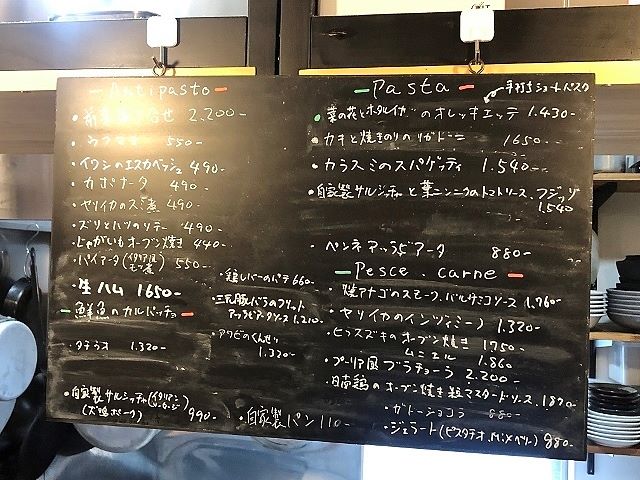 Antipasto
・前菜盛り合せ 2.200-
550-
・イワシのエスカベッシュ 490-
・カポナータ 490-
・ヤリイカのスミ煮 490-
490-
・じゃがいもオーブン焼き 440-
(イタリア風モツ煮) 550-
・生ハム 1650-
鮮魚のカルパッチョ
・タチウオ 1.320-
・自家製サルシッチャ(イタリアンソーセージ)
990-
・鶏レバーのパテ 660-
・三元豚バラのフリット
アラビアータソース 1.210-
・アワビのくんせい
1.320-
・自家製パン 110-
Pasta
手打ちショートパスタ
・菜の花とホタルイカのオレッキエッテ 1.430-
・カキと焼きのりのリガトーニ 1650-
・カラスミのスパゲッティ 1.540-
・自家製サルシッチャと葉ニンニクのトマトソース、フジッリ
1.540
・ペンネアラビアータ 880-
Pesce.carne
・焼アナゴのスモーク、バルサミコソース 1.760-
・ヤリイカのインツィミーノ 1.320-
・ヒラスズキのオーブン焼き 1750-
ムニエル 1.860
・プーリア風ブラチョーラ 2.200-
・日南鶏のオーブン焼き粒マスタードソース 1870-
・ガトーショコラ 880-
・ジェラート(ピスタチオ、Mixベリー) 880-